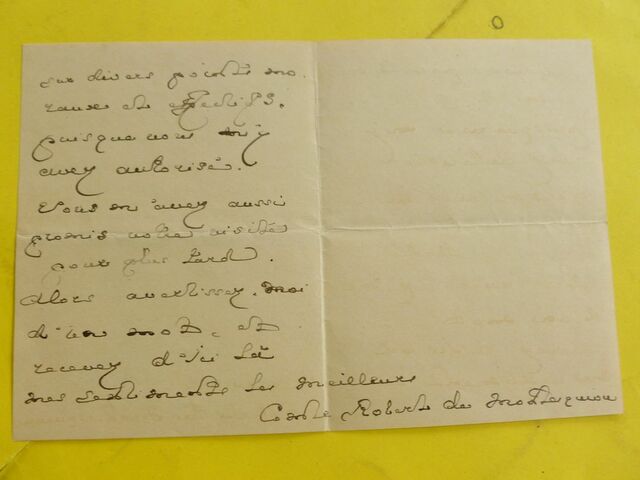 sur divers points mo
raux et effectifs,
puisque vous m'y
avez autorisé.
Vous m'avez aussi
promis votre visite
pour plus tard.
Alors avertissez-moi
d'un mot, et
recevez d'ici là
mes sentiments les meilleurs
Comte Robert de Montesquiou